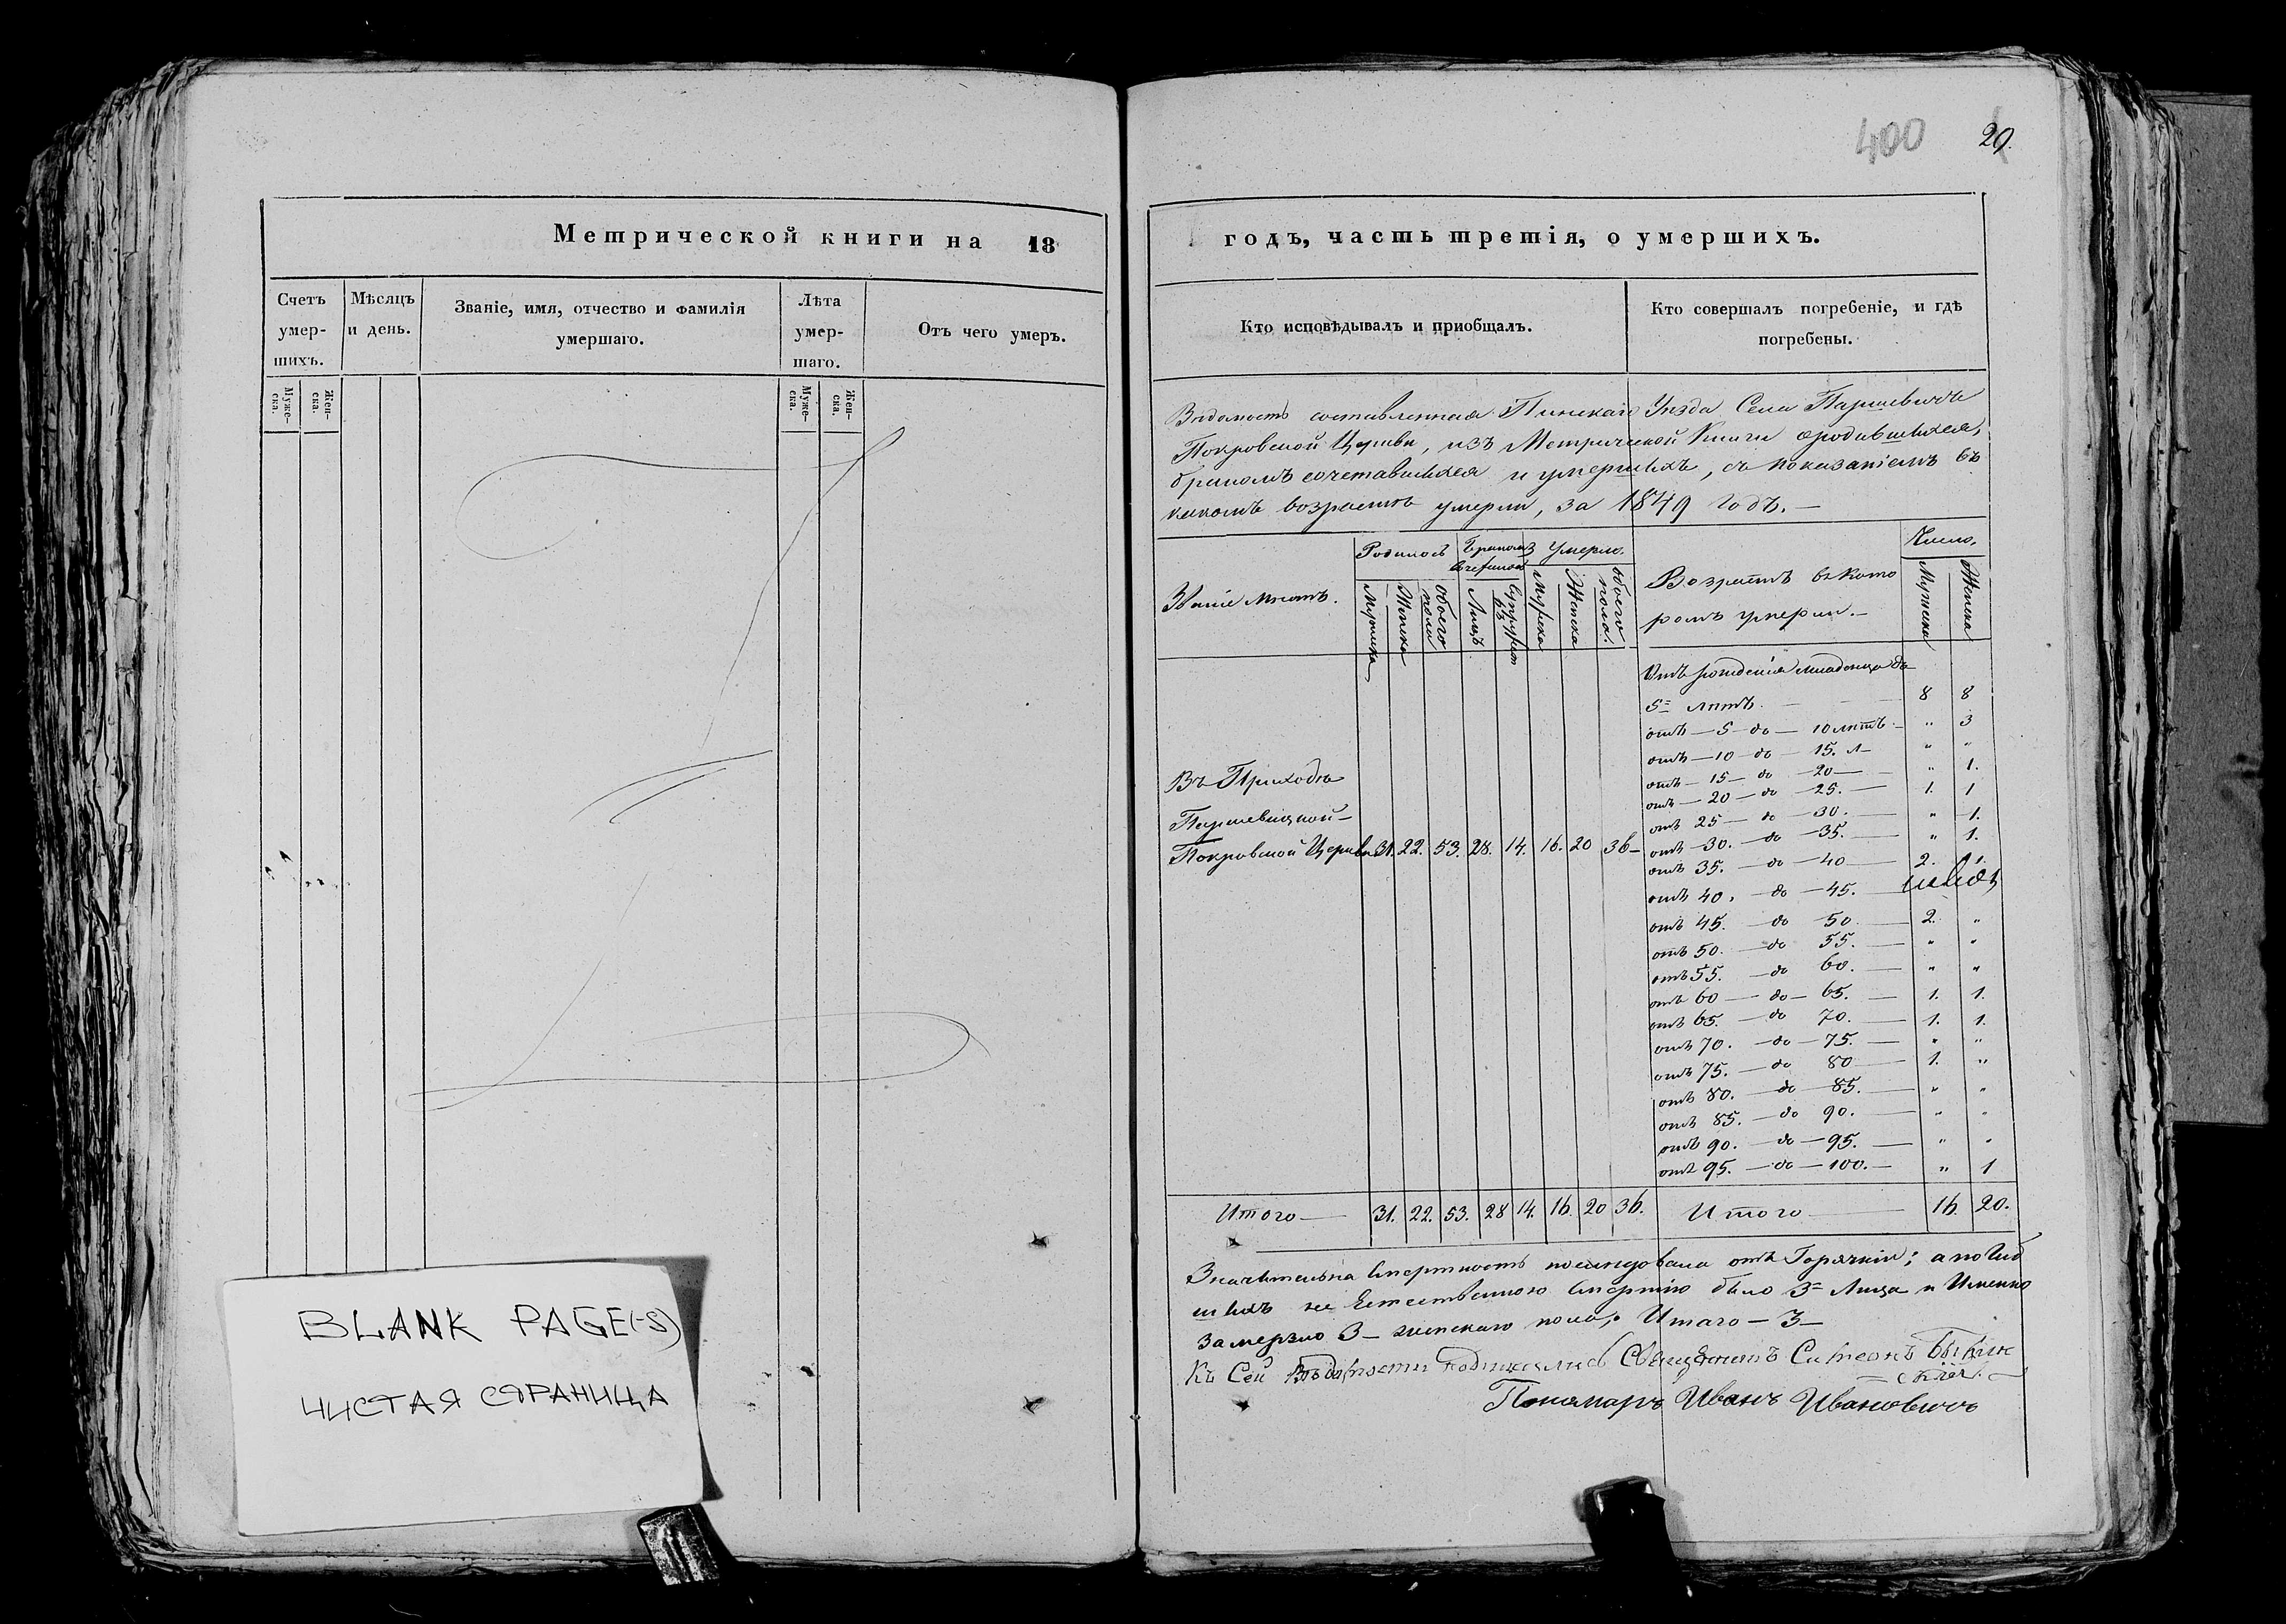 400 29.
Метрической книги на 18
годъ, часть третія, о умершихъ.
Счетъ умер-шихъ.
Мѣсяцъ и день.
Званіе, имя, отчество и фамилія умершаго.
Лѣта умер-шаго.
Отъ чего умеръ.
Муже-ска. Жен-ска. Муже-ска. Жен-ска.
BLANK PAGE(-S)
ЧИСТАЯ СТРАНИЦА
Кто исповѣдывалъ и пріобщалъ.
Кто совершалъ погребеніе, и гдѣ погребены.
Вѣдомость составленная Пинскаго Уѣзда Села Паршевичъ
Покровской Церкви, изъ Метрической Книги ородившихся,
бракомъ сочетавшихся и умершихъ, съ показаніемъ въ
какомъ возрастѣ умерли, за 1849 годъ. —
Званіе мѣстъ.
Родилось Бракомъ Умерло.
Мужска Женска Обоего пола Лицъ Мужска Женска обоего пола.
Возрастъ въ кото
ромъ умерли. —
Число.
Мужска Женска
Отъ рожденія младенца до
5= лѣтъ. — 8 8
отъ — 5 — до — 10 лѣтъ — " 3
отъ — 10 — до — 15. л — " "
отъ — 15 — до — 20 — " 1.
отъ — 20 — до — 25. — 1. 1
отъ 25 — до — 30. — " 1.
отъ — 30. — до — 35. — " 1.
отъ 35. — до — 40 — 2. 1.
отъ 40. — до — 45. —
отъ 45. — до 50. — 2. "
отъ 50. — до 55. — " "
отъ 55. — до 60. — " "
отъ 60 — до — 65. — 1. 1.
отъ 65. — до 70. — 1. 1.
отъ 70. — до — 75. — " "
отъ 75. — до 80 — 1. "
отъ 80. — до — 85. — " "
отъ 85. — до 90. — " "
отъ 90. — до — 95. — " "
отъ 95. — до — 100. — " 1
Въ Приходѣ
Паршевицкой —
Покровской Церкви 31. 22. 53. 28. 14. 16. 20 36 —
Итого — 31. 22. 53. 28 14. 16. 20 36. Итого — 16. 20.
Значительна Смертность послѣдовала отъ Горячкіи; а погиб
шихъ не Естественною Смертію было 3= Лица и Именно
Замерзло 3 — женскаго пола; Итого — 3 —
Къ Сей Вѣдомости подписались Священникъ Симеонъ
Пономарь Иванъ Ивановичъ